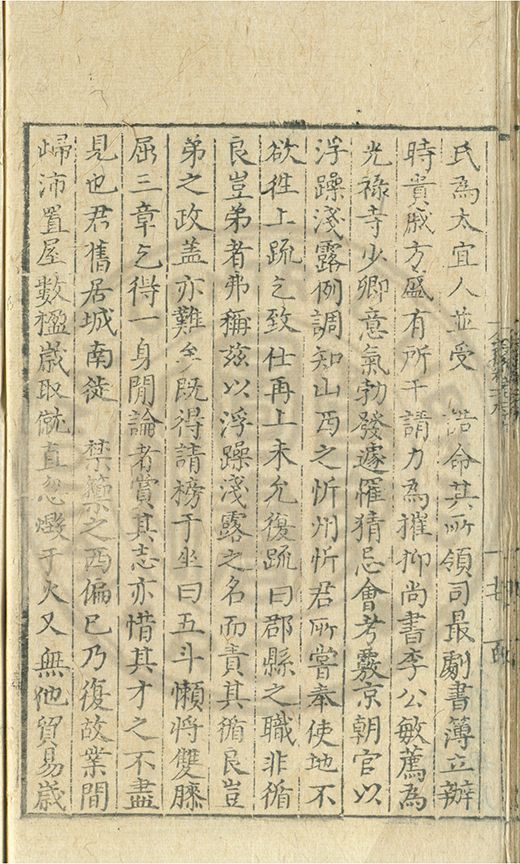 氏為太宜人並受 誥命其所領司最劇書簿立辦
時貴戚方盛有所干請力為摧抑尚書李公敏薦為
光祿寺少卿意氣勃發遽罹猜忌會考覈京朝官以
浮躁淺露例調知山西之忻州忻君所嘗奉使地不
欲徃上疏乞致仕再上未允復疏曰郡縣之職非循
良豈弟者弗稱茲以浮躁淺露之名而責其循良豈
弟之政盖亦難矣既得請榜于坐曰五斗懶將雙膝
屈三章乞得一身閒論者賞其志亦惜其才之不盡
見也君舊居城南徙 禁籞之西偏已乃復故業間
歸沛置屋數楹歲取僦直忽燬于火又無他貿易歲